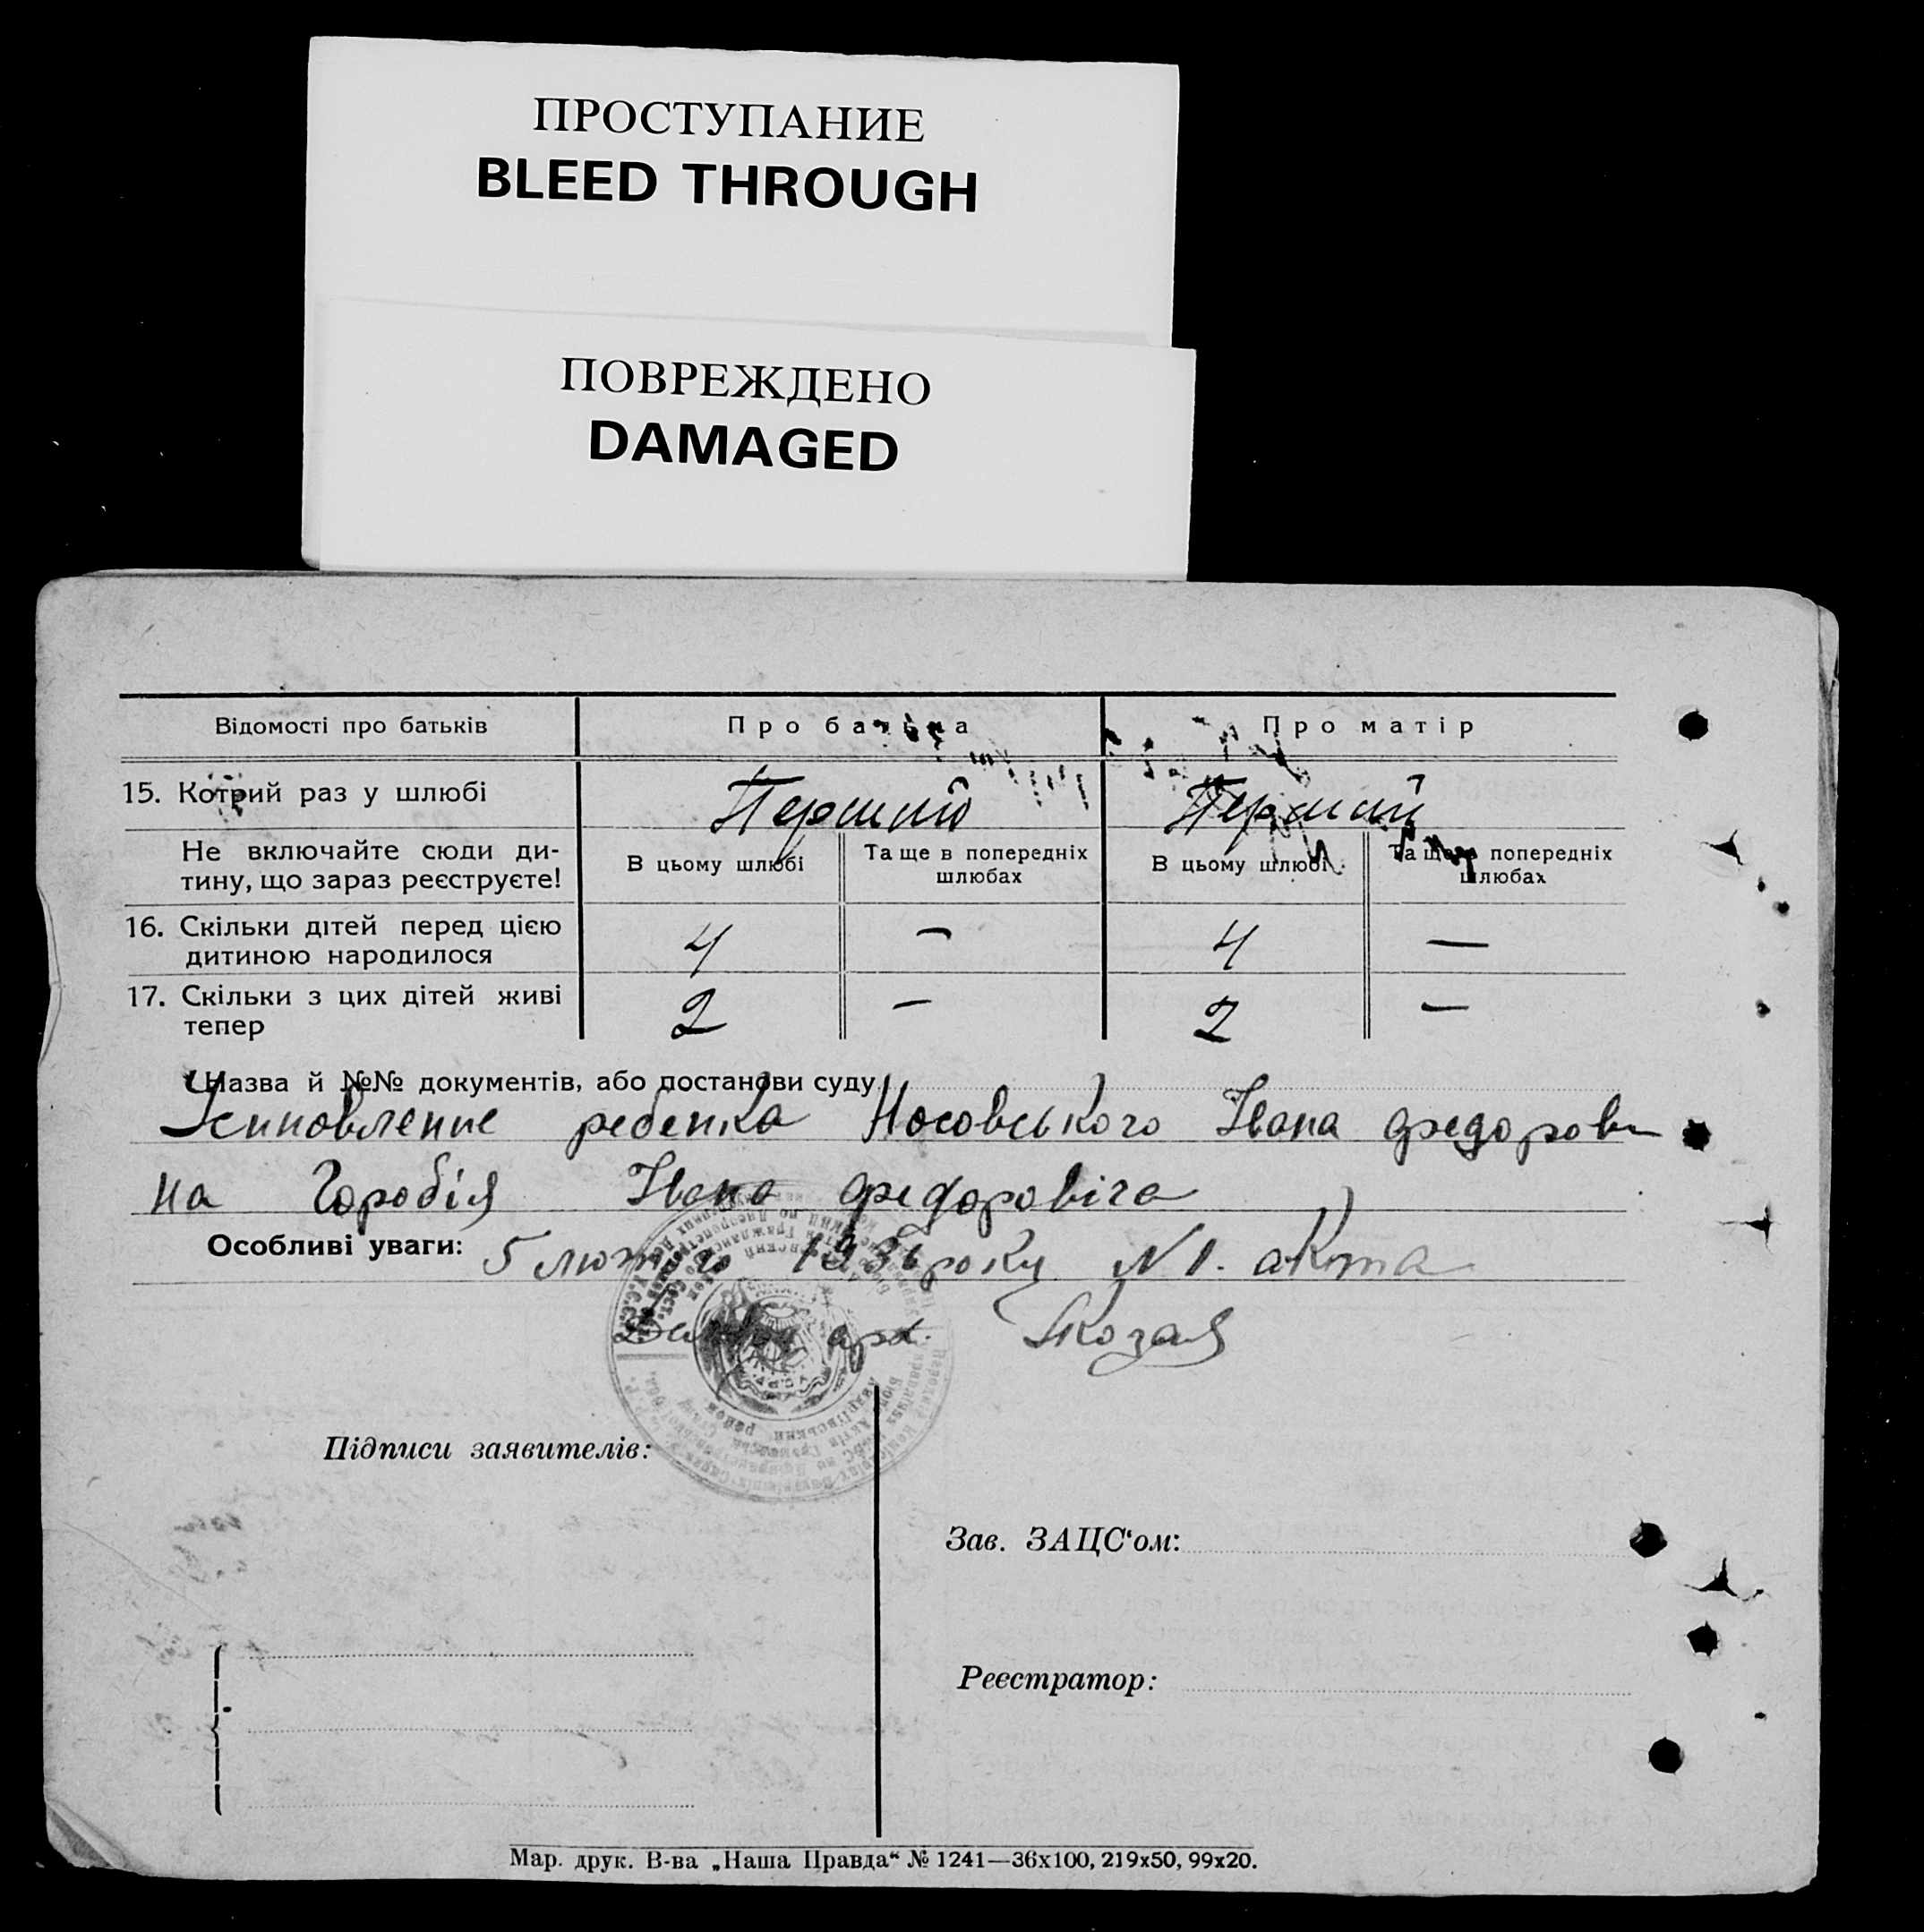 ПРОСТУПАНИЕ
BLEED THROUGH
ПОВРЕЖДЕНО
DAMAGED
Відомості про батьків Про батька Про матір
15. Котрий раз у шлюбі Перший Перший
Не включайте сюди ди-
тину, що зараз реєструєте!
В цьому шлюбі Та ще в попередніх
шлюбах
В цьому шлюбі Та ще в попередніх
шлюбах
16. Скільки дітей перед цією
дитиною народилося
4 — 4 —
17. Скільки з цих дітей живі
тепер
2 — 2 —
Назва й №№ документів, або постанови суду
Усиновление ребенка Носовського Івана Федорови
на Горобія Івана Федоровіча
Особливі уваги: 5 лютого 1936 року N 1. акта
арх.
Підписи заявителів:
Зав. ЗАЦС'ом:
Реєстратор:
Мар. друк. В-ва „Наша Правда“ № 1241—36х100, 219х50, 99х20.